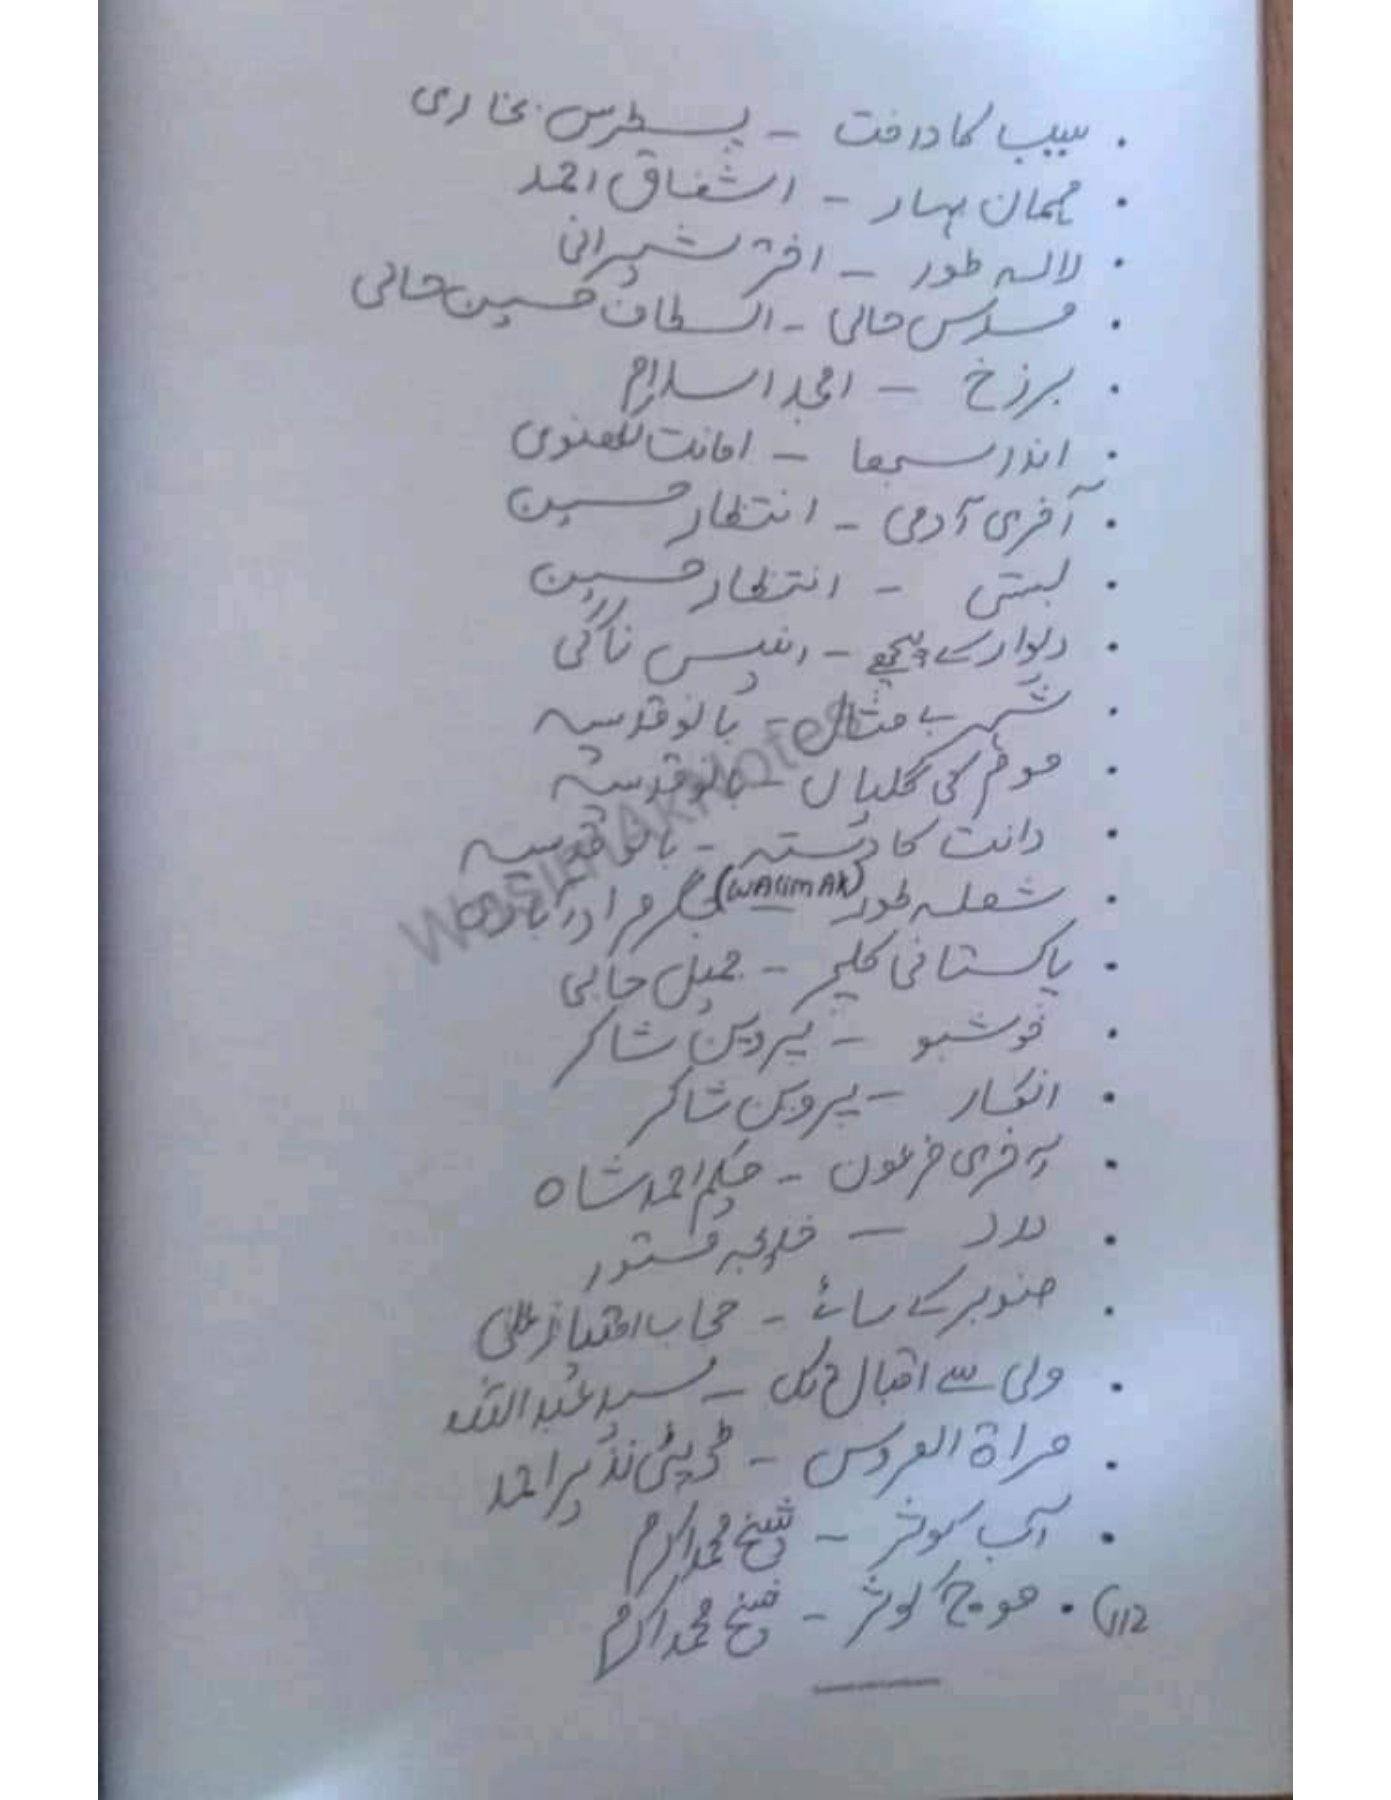 . سیب کا درخت - پطرس بخاری
. مہمان بہار - اشفاق احمد
. لالہ طور - اختر شیرانی
. مسدس حالی - الطاف حسین حالی
. برزخ - امجد اسلام
. اندر سبھا - امانت لکھنوی
. آخری آدمی - انتظار حسین
. بستی - انتظار حسین
. دیوار کے پیچھے - انیس ناگی
. شہر بے مثال - بانو قدسیہ
. موم کی گلیاں - بانو قدسیہ
. دانت کا دستہ - بانو قدسیہ
. شعلہ طور (WASIM AK) جگر مراد آبادی
. پاکستانی کلچر - جمیل جالبی
. خوشبو - پروین شاکر
. انکار - پروین شاکر
. فرعون - حکیم احمد شاہ
. - خدیجہ مستور
. صنوبر کے سائے - حجاب امتیاز علی
. ولی سے اقبال تک - سید عبداللہ
. مراۃ العروس - ڈپٹی نذیر احمد
. آب کوثر - شیخ محمد اکرم
112) . موج کوثر - شیخ محمد اکرم